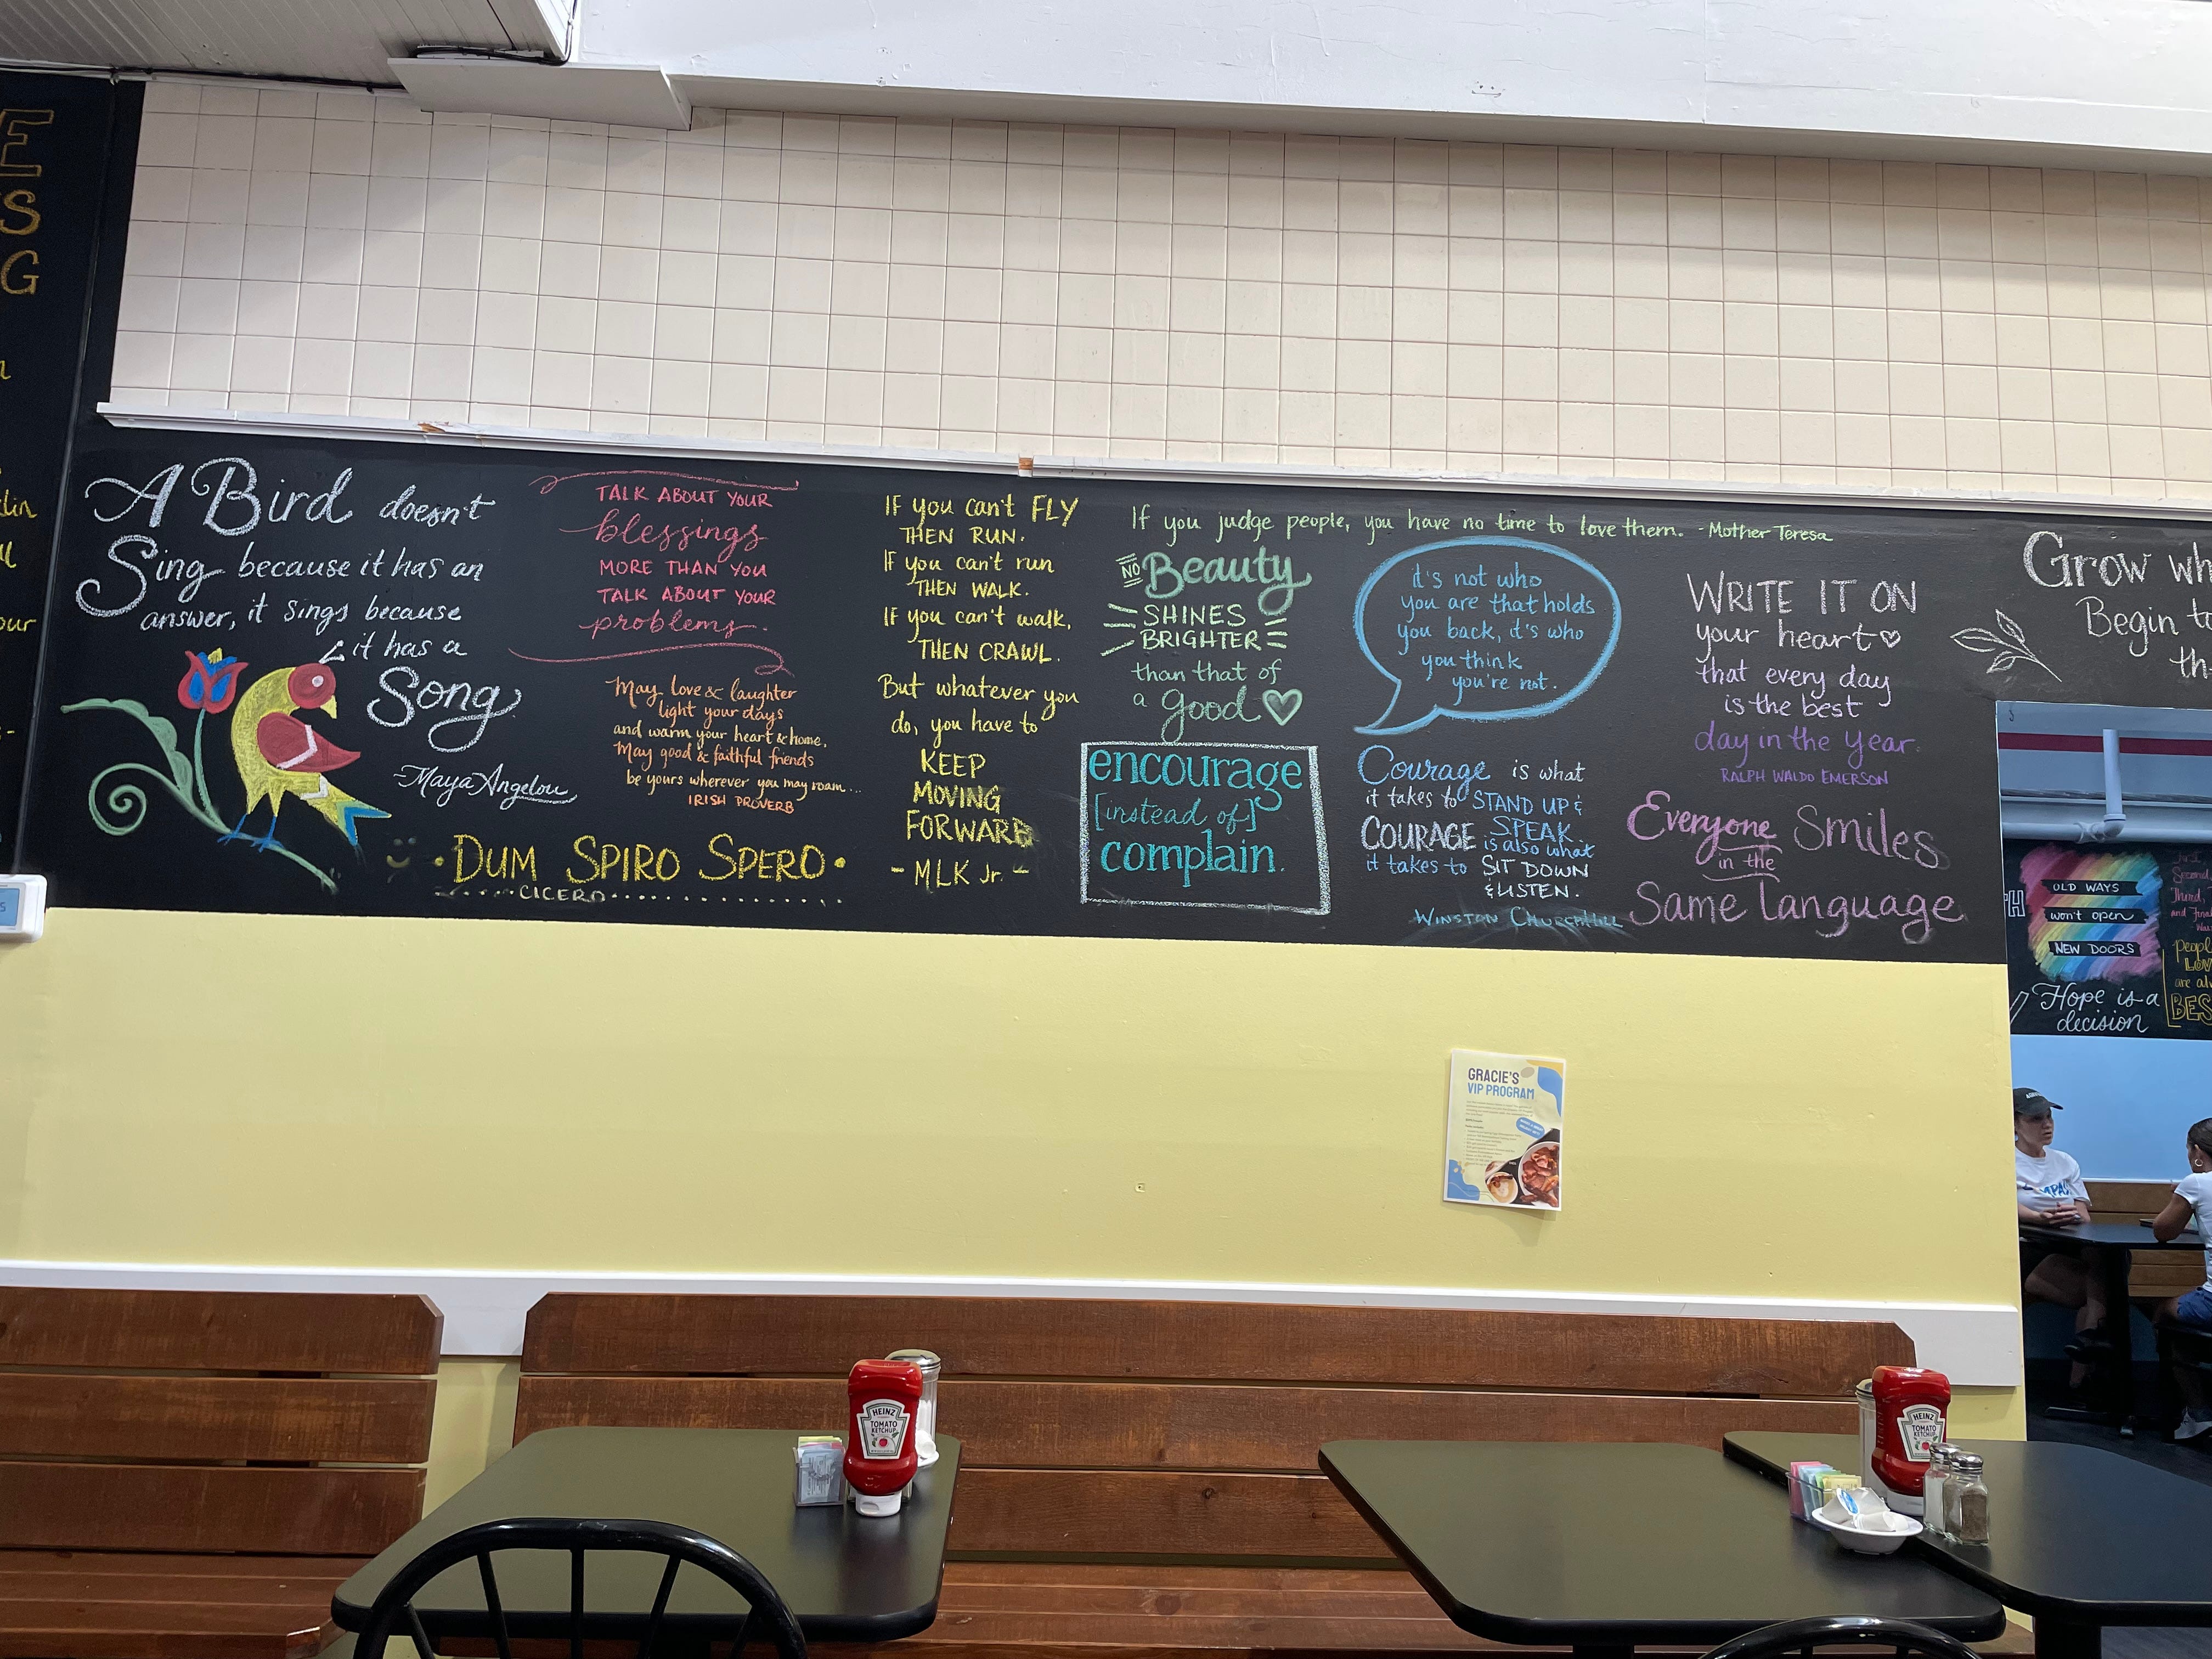 A Bird doesn't
Sing because it has an
answer, it sings because
it has a
Song.
-Maya Angelou
TALK ABOUT YOUR
blessings
MORE THAN YOU
TALK ABOUT YOUR
problems.
May love & laughter
light your days
and warm your heart & home,
May good & faithful friends
be yours wherever you may roam...
IRISH PROVERB
• DUM SPIRO SPERO •
CICERO
IF you can't FLY
THEN RUN.
IF you can't run
THEN WALK.
IF you can't walk,
THEN CRAWL.
But whatever you
do, you have to
KEEP
MOVING
FORWARD
- MLK Jr. -
If you judge people, you have no time to love them. - Mother Teresa
NO Beauty
SHINES
BRIGHTER
than that of
a good
encourage
[instead of]
complain.
it's not who
you are that holds
you back, it's who
you think
you're not.
Courage is what
it takes to STAND UP &
SPEAK.
COURAGE is also what
it takes to SIT DOWN
& LISTEN.
WINSTON CHURCHILL
WRITE IT ON
your heart
that every day
is the best
day in the Year.
RALPH WALDO EMERSON
Everyone Smiles
in the
Same Language
Grow
Begin
OLD WAYS
won't open
NEW DOORS
Hope is a
decision
GRACIE'S
VIP PROGRAM
HEINZ
TOMATO
KETCHUP
HEINZ
TOMATO
KETCHUP